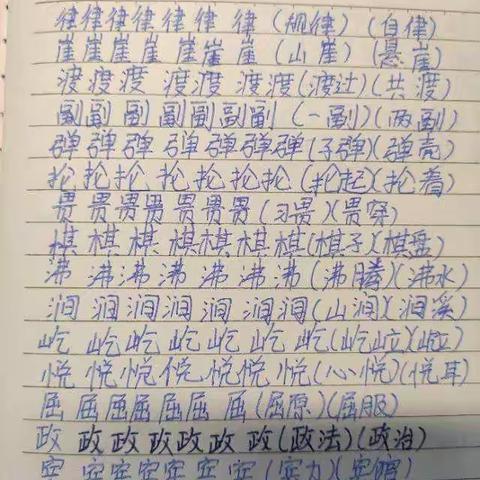 律律律律律律 律 (规律) (自律)
崖崖崖崖 崖崖崖 (山崖) (悬崖)
渡渡渡 渡渡 渡渡(渡过)(共渡)
副副 副 副副副副 (一副)(两副)
弹弹弹 弹弹弹弹(子弹)(弹壳)
抡抡抡 抡抡抡抡 (抡起)(抡着)
贯贯贯贯贯贯贯 (习贯)(贯穿)
棋棋棋 棋棋棋棋(棋子)(棋盘)
沸 沸沸沸 沸沸沸 (沸腾)(沸水)
涧 涧涧涧 涧 涧涧(山涧)(涧溪)
屹 屹屹屹 屹 屹屹(屹立)
悦 悦悦悦悦悦 悦(心悦)(悦耳)
屈 屈屈屈屈屈 屈(屈原)(屈服)
政 政政政政政 政(政法)(政治)